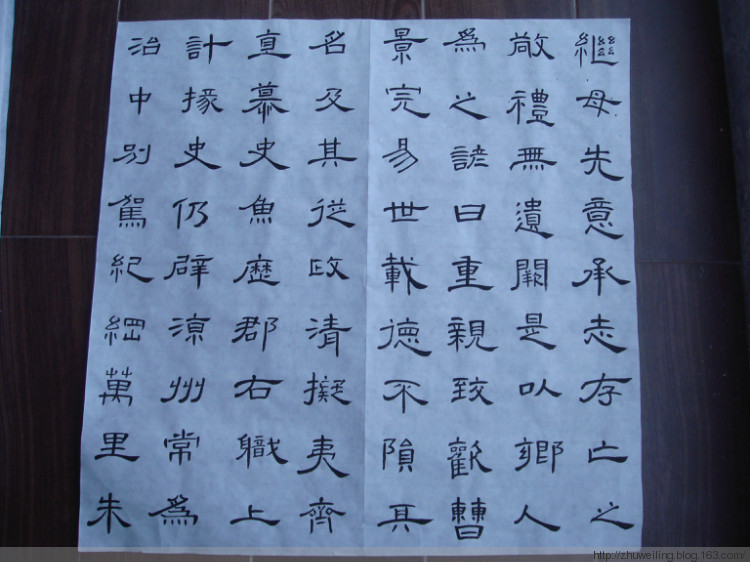 繼母先意承志存亡之
敬禮無遺闕是以鄉人
為之諺曰重親致歡曹
景完易世載德不隕其
名及其從政清擬夷齊
直慕史魚歷郡右職上
計掾史仍辟涼州常為
治中別駕紀綱萬里朱
http://zhuweiling.blog.163.com/